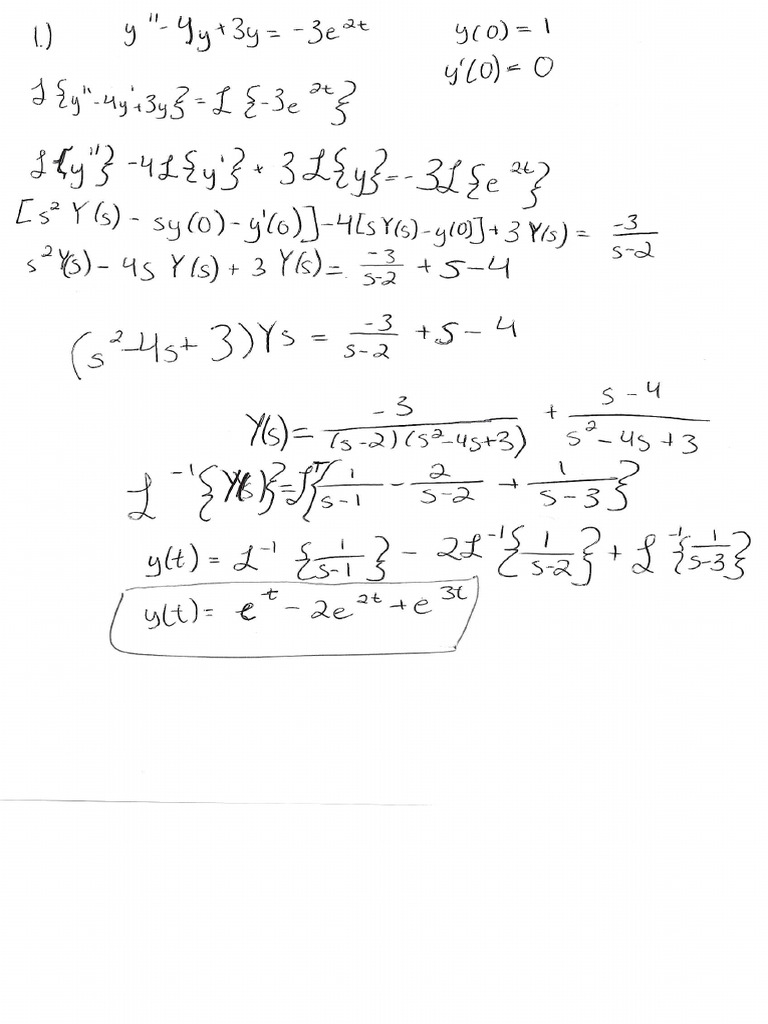 1.) y'' - 4y + 3y = -3e^{2t} y(0) = 1
y'(0) = 0
ℒ{y'' - 4y' + 3y} = ℒ{-3e^{2t}}
ℒ{y''} - 4ℒ{y'} + 3ℒ{y} = -3ℒ{e^{2t}}
[s² Y(s) - sy(0) - y'(0)] - 4[sY(s) - y(0)] + 3Y(s) = -3/(s-2)
s² Y(s) - 4s Y(s) + 3 Y(s) = -3/(s-2) + s - 4
(s² - 4s + 3)Ys = -3/(s-2) + s - 4
Y(s) = -3/((s-2)(s²-4s+3)) + (s-4)/(s²-4s+3)
ℒ^{-1}{Y(s)} = ℒ^{-1}{1/(s-1) - 2/(s-2) + 1/(s-3)}
y(t) = ℒ^{-1}{1/(s-1)} - 2ℒ^{-1}{1/(s-2)} + ℒ^{-1}{1/(s-3)}
y(t) = e^t - 2e^{2t} + e^{3t}